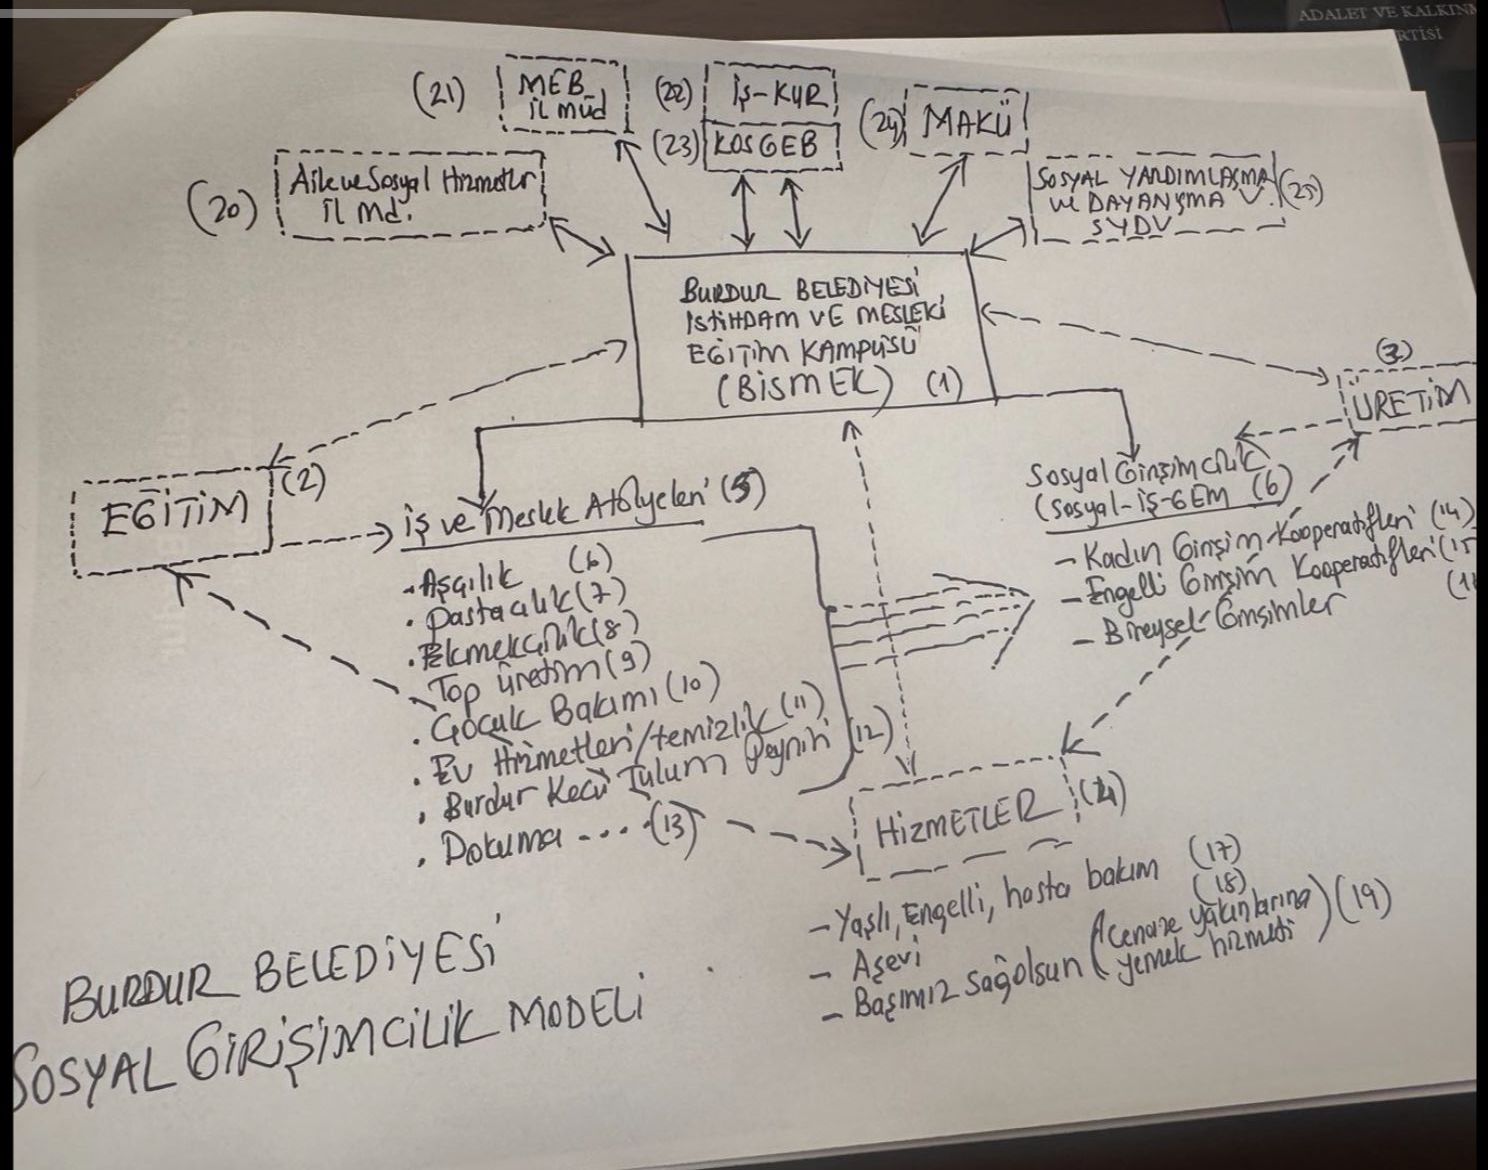 ADALET VE KALKINM
RTİSİ
(21) MEB
İL müd
(22) İŞ-KUR
(23) KOSGEB
(24) MAKÜ
(20) Aile ve Sosyal Hizmetler
İL Md.
SOSYAL YARDIMLAŞMA
ve DAYANIŞMA V. (25)
SYDV
BURDUR BELEDİYESİ
İSTİHDAM VE MESLEKİ
EĞİTİM KAMPÜSÜ
(BİSMEK) (1)
(3)
ÜRETİM
EĞİTİM (2)
İş ve Meslek Atölyeleri (5)
- Aşçılık (6)
. Pastacılık (7)
. Ekmekçilik (8)
Top üretim (9)
. Çocuk Bakımı (10)
. Ev Hizmetleri/temizlik (11)
. Burdur Keçi Tulum Peyniri (12)
. Dokuma .... (13)
Sosyal Girişimcilik
(Sosyal-İŞ-GEM (6)
- Kadın Girişim Kooperatifleri (14)
- Engelli Girişim Kooperatifleri (15
- Bireysel Girişimler (1
HİZMETLER (4)
- Yaşlı, Engelli, hasta bakım (17)
- Aşevi (18)
- Başımız sağolsun (Cenaze yakınlarına
yemek hizmeti) (19)
BURDUR BELEDİYESİ
SOSYAL GİRİŞİMCİLİK MODELİ